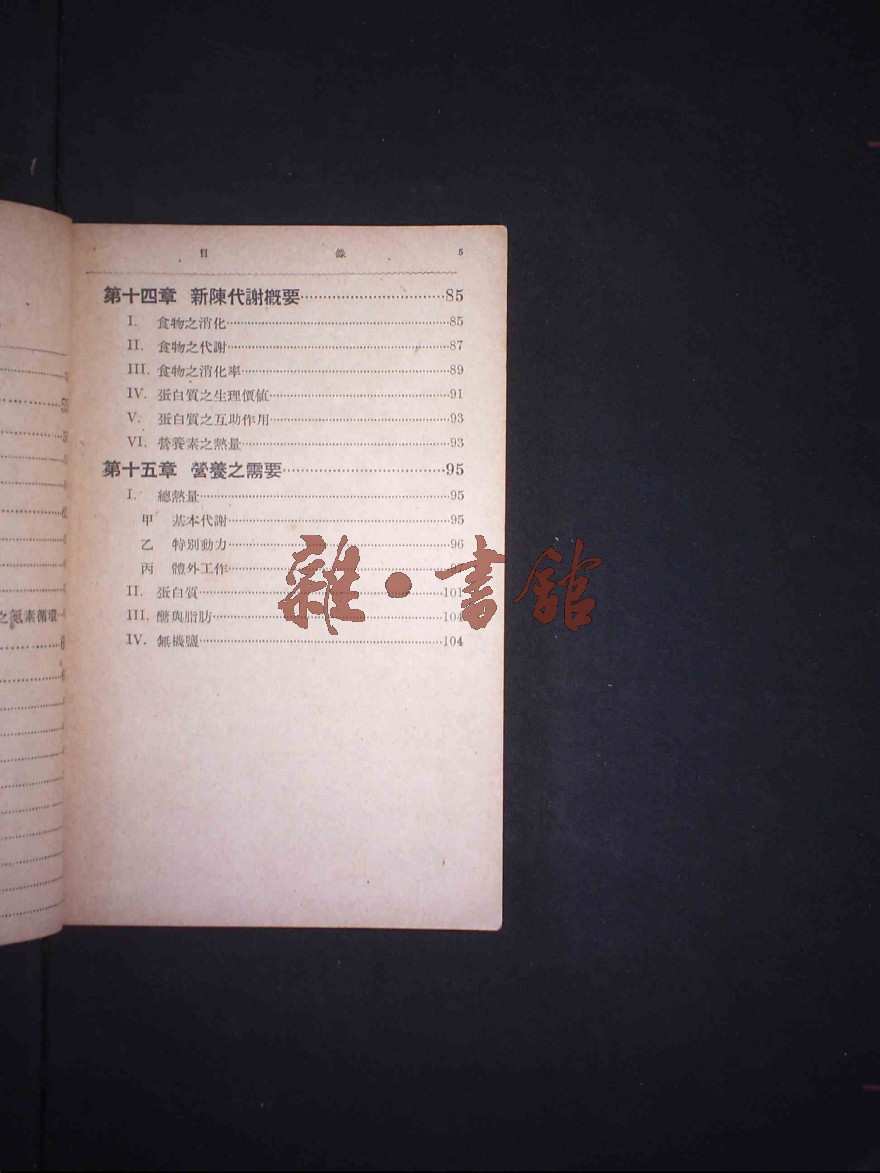 之氮素循環
目錄 5
第十四章 新陳代謝概要 85
I. 食物之消化 85
II. 食物之代謝 87
III. 食物之消化率 89
IV. 蛋白質之生理價値 91
V. 蛋白質之互助作用 93
VI. 營養素之熱量 93
第十五章 營養之需要 95
I. 總熱量 95
甲 基本代謝 95
乙 特別動力 96
丙 體外工作
II. 蛋白質 101
III. 醣與脂肪 104
IV. 無機鹽 104
雜·書館